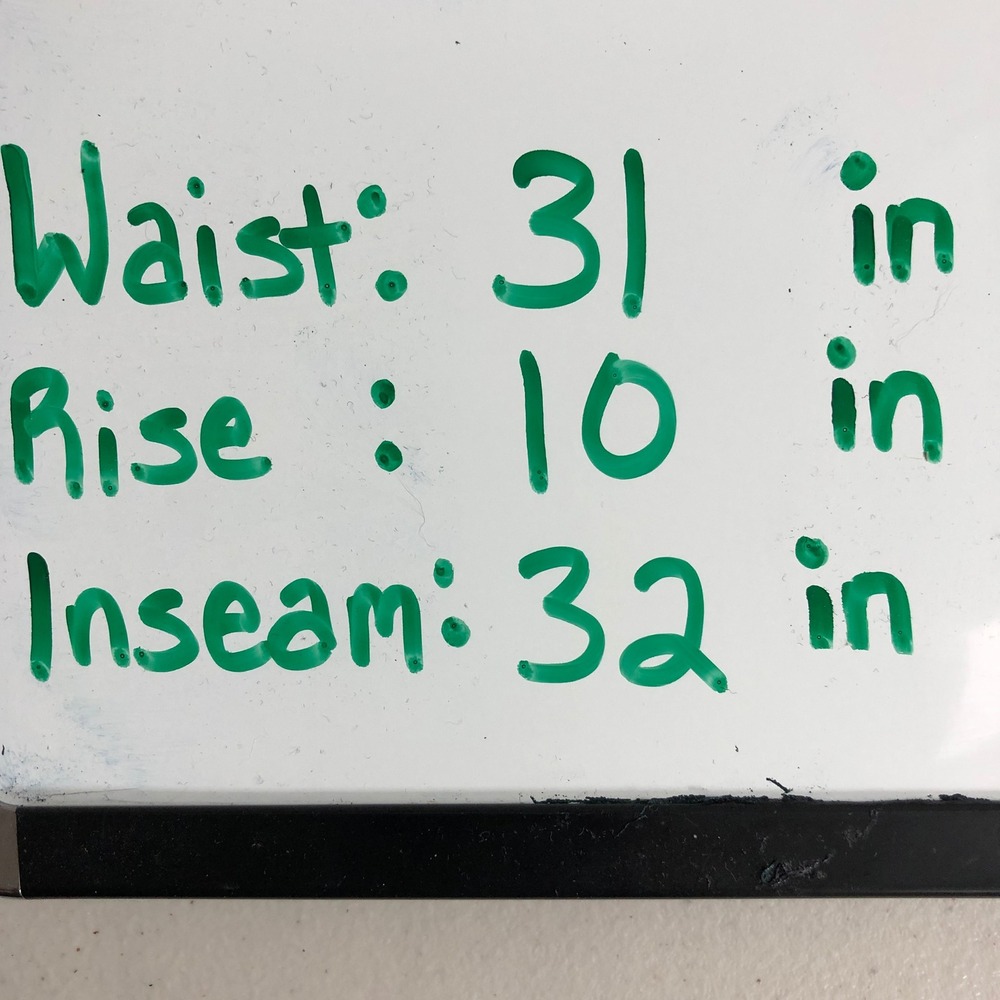 Waist: 31 in
Rise : 10 in
Inseam: 32 in